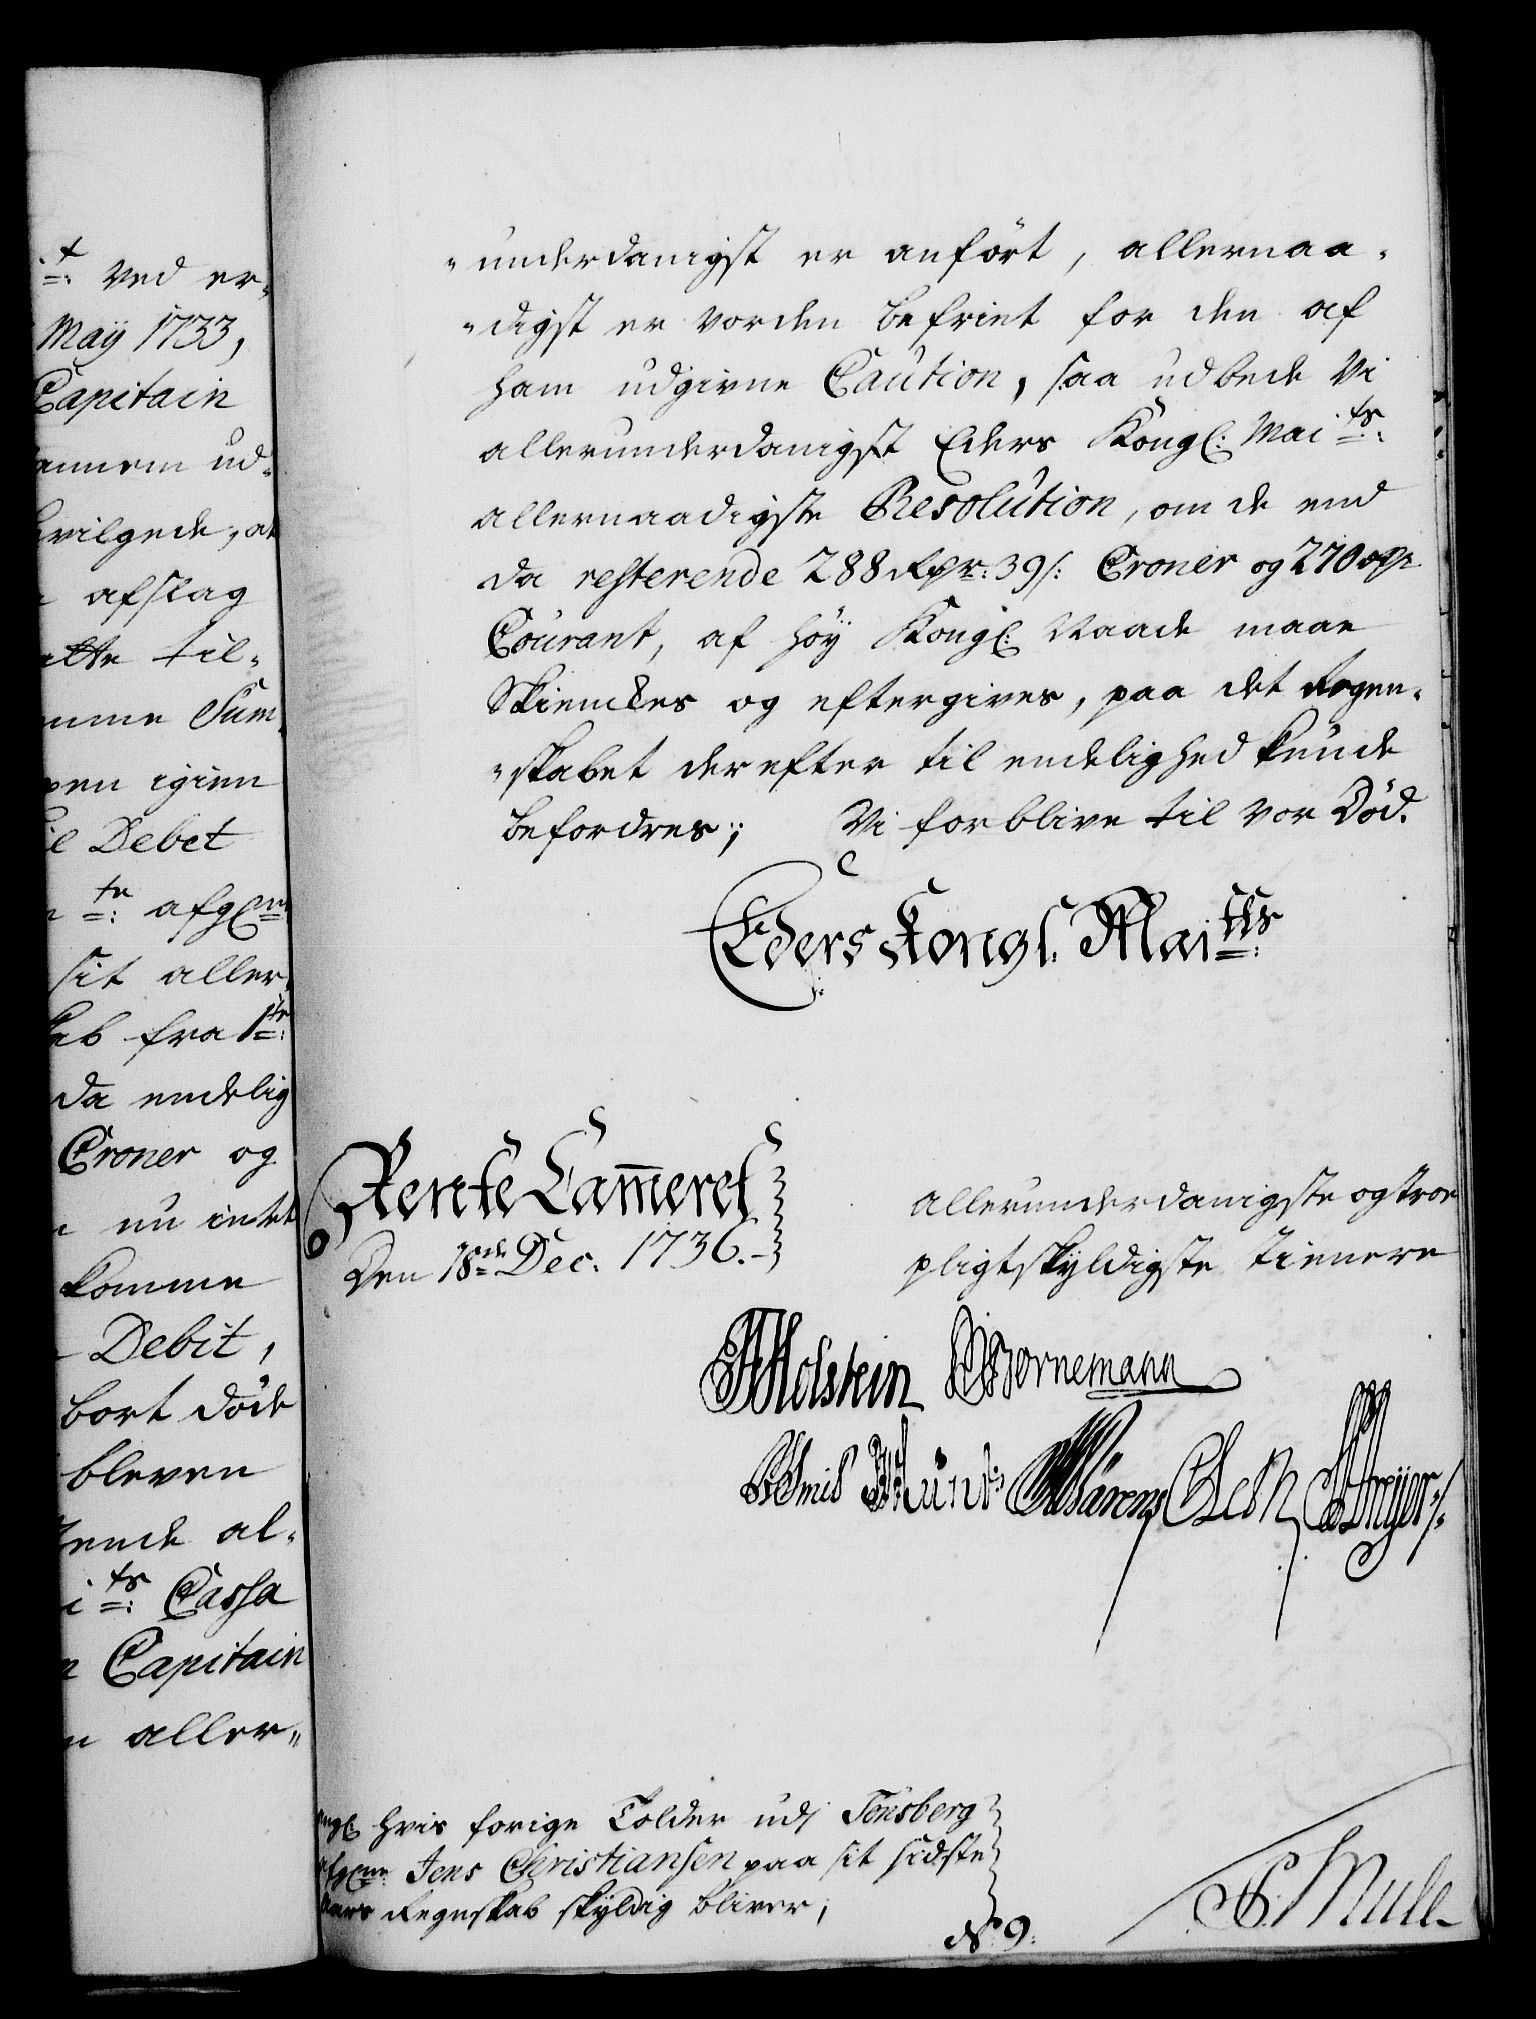 t: ved er-
May 1733,
Capitain
ennem ud-
bevilgede, at
afslag
ette til-
mme Sum,
pen igien
il Debet
te: afgl:
sit aller-
ab fra 1te:
da endelig
Croner og
nu intet
komme
Debit,
bort døde
bleven
ende al-
i ts: Cassa
n Capitain
n aller-
-underdanigst er anført, allernaa-
-digst er vorden befriet for den af
ham udgivne Caution, saa udbede Vi
allerunderdanigst Eders Kongl: Mai ts:
allernaadigste Resolution, om de end
da resterende 288 Rdr: 39 s: Croner og 270
Courant, af høy Kongl: Naade maae
Skienckes og eftergives, paa det Regen-
-skabet derefter til endelighed kunde
befordres; Vi forblive til vor Død.
Eders Kongl. Mai tts:
Rente Cammeret
Den 18de Dec: 1736.
allerunderdanigste og troe
pligtskyldigste tienere
Holstein Bornemann
Smid Munt
ngl: hvis forige Tolder udj Tønsberg
afgl: Jens Christiansen paa sit sidste
Aars Regnskab skyldig bliver;
N: 9: